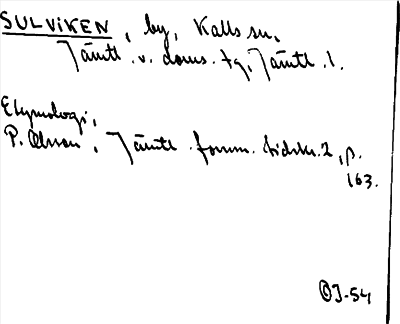 SULVIKEN, by, Kalls sn,
Jämtl. v. doms. tg, Jämtl. l.
Etymologi,
P. Olsson, Jämtl. fornm. tidskr. 2, p.
163.
ÖJ-54